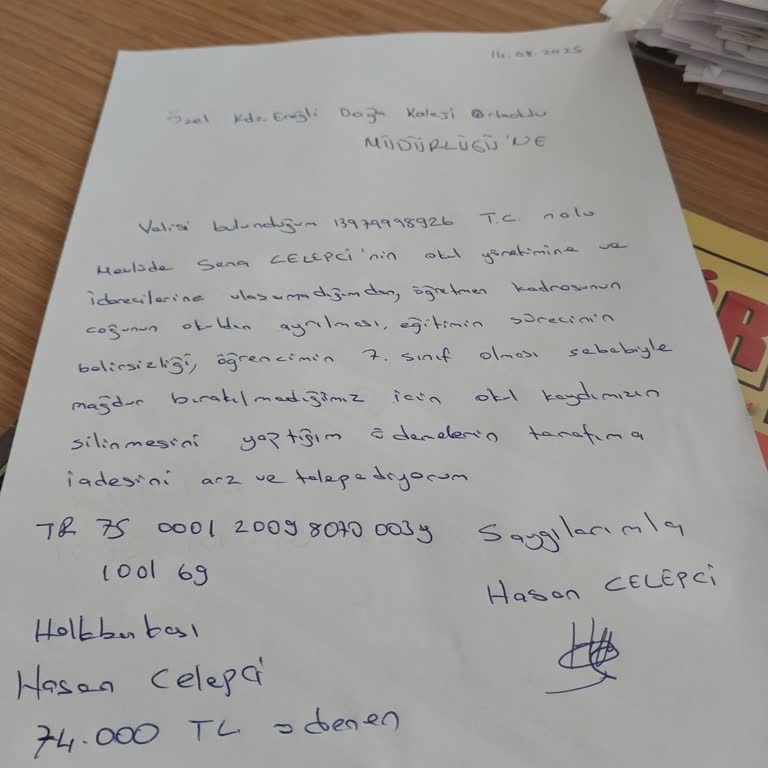 14.08.2025
Özel Kdz. Ereğli Doğa Koleji Ortaokulu
MÜDÜRLÜĞÜ'NE
Velisi bulunduğum 13979998926 T.C. nolu
Mevlüde Sena CELEPCİ'nin okul yönetimine ve
idarecilerine ulaşamadığımdan, öğretmen kadrosunun
çoğunun okuldan ayrılması, eğitimin sürecinin
belirsizliği, öğrencimin 7. sınıf olması sebebiyle
mağdur bırakılmadığımız için okul kaydımızın
silinmesini yaptığım ödemelerin tarafıma
iadesini arz ve talep ediyorum
TR 75 0001 2009 8070 0039
1001 69
Saygılarımla
Hasan CELEPCİ
Halkbankası
Hasan Celepci
74.000 TL ödenen